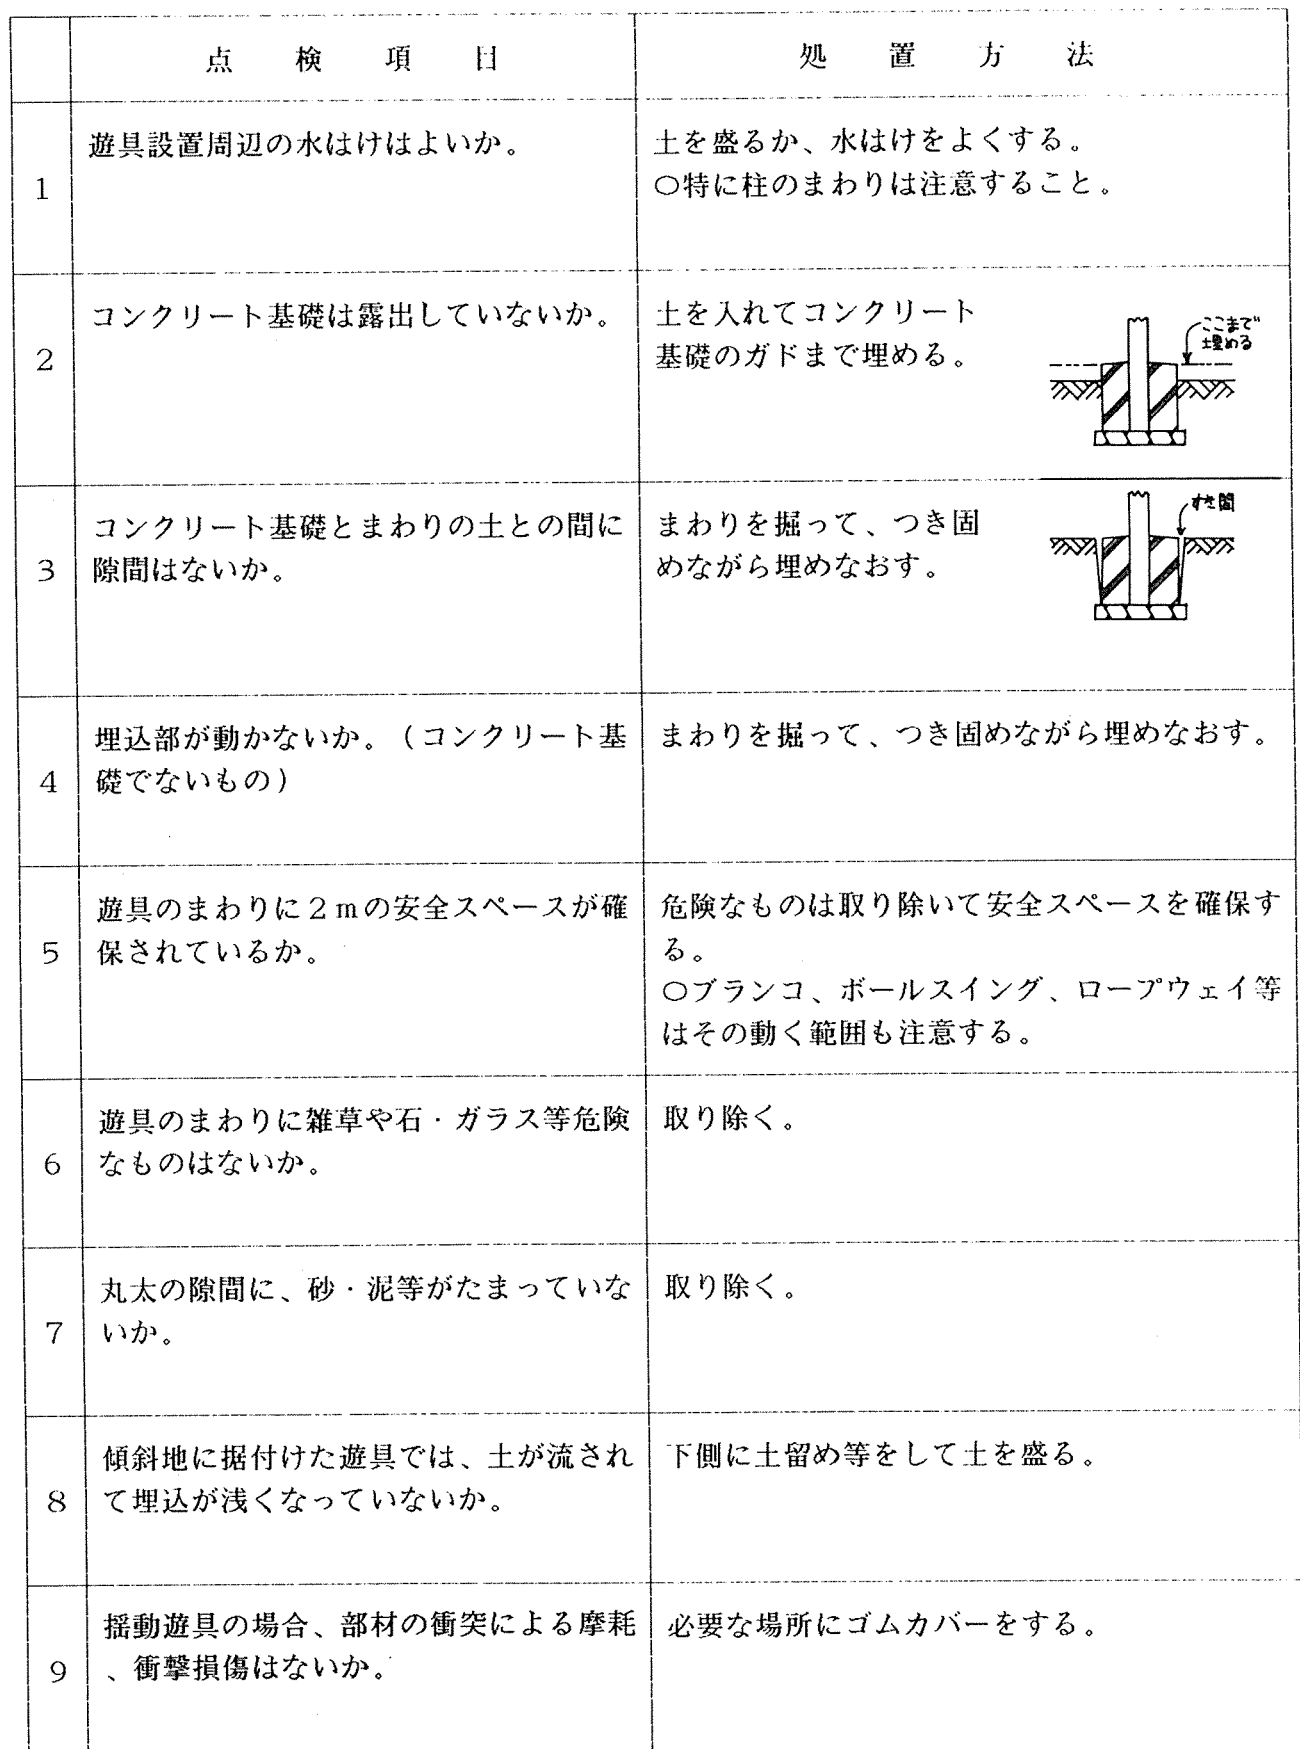 点検項目
処置方法
1
遊具設置周辺の水はけはよいか。
土を盛るか、水はけをよくする。
○特に柱のまわりは注意すること。
2
コンクリート基礎は露出していないか。
土を入れてコンクリート
基礎のガドまで埋める。
ここまで
埋める
3
コンクリート基礎とまわりの土との間に
隙間はないか。
まわりを掘って、つき固
めながら埋めなおす。
すき間
4
埋込部が動かないか。(コンクリート基
礎でないもの)
まわりを掘って、つき固めながら埋めなおす。
5
遊具のまわりに2mの安全スペースが確
保されているか。
危険なものは取り除いて安全スペースを確保す
る。
○ブランコ、ボールスイング、ロープウェイ等
はその動く範囲も注意する。
6
遊具のまわりに雑草や石・ガラス等危険
なものはないか。
取り除く。
7
丸太の隙間に、砂・泥等がたまっていな
いか。
取り除く。
8
傾斜地に据付けた遊具では、土が流され
て埋込が浅くなっていないか。
下側に土留め等をして土を盛る。
9
揺動遊具の場合、部材の衝突による摩耗
、衝撃損傷はないか。
必要な場所にゴムカバーをする。